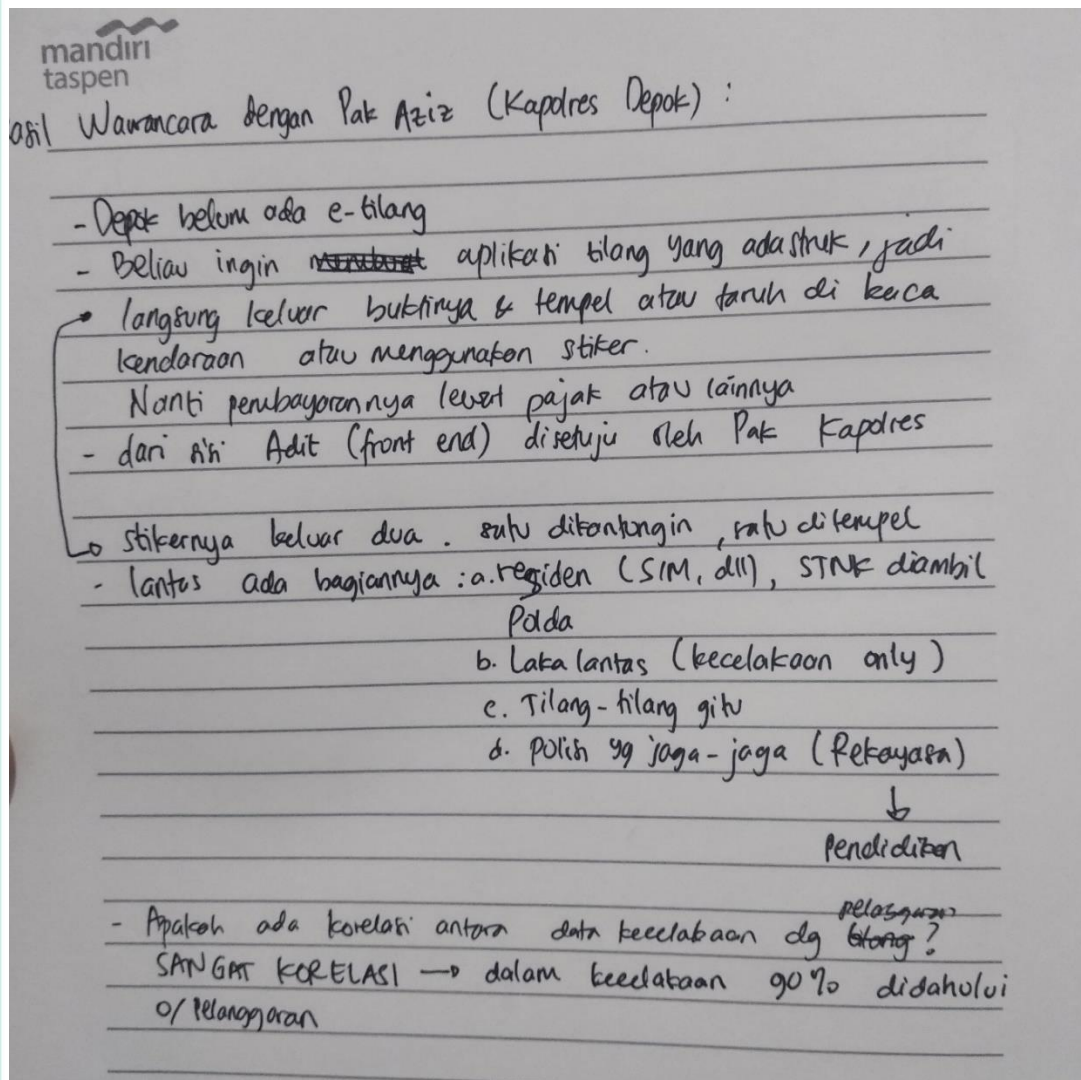 mandiri
taspen
asil Wawancara dengan Pak Aziz (Kapolres Depok) :
- Depok belum ada e-tilang
- Beliau ingin aplikasi tilang yang ada struk, jadi
langsung keluar buktinya & tempel atau taruh di kaca
kendaraan atau menggunakan stiker.
Nanti pembayarannya lewat pajak atau lainnya
- dari sisi Adit (front end) disetuju oleh Pak Kapolres
stikernya keluar dua. satu dikantungin, satu ditempel
- lantas ada bagiannya : a. regiden (SIM, dll), STNK diambil
Polda
b. Laka lantas (kecelakaan only)
c. Tilang-tilang gitu
d. Polisi yg jaga-jaga (Rekayasa)
↓
Pendidikan
- Apakah ada korelasi antara data kecelakaan dg tilang?
SANGAT KORELASI → dalam kecelakaan 90% didahului
o/ Pelanggaran